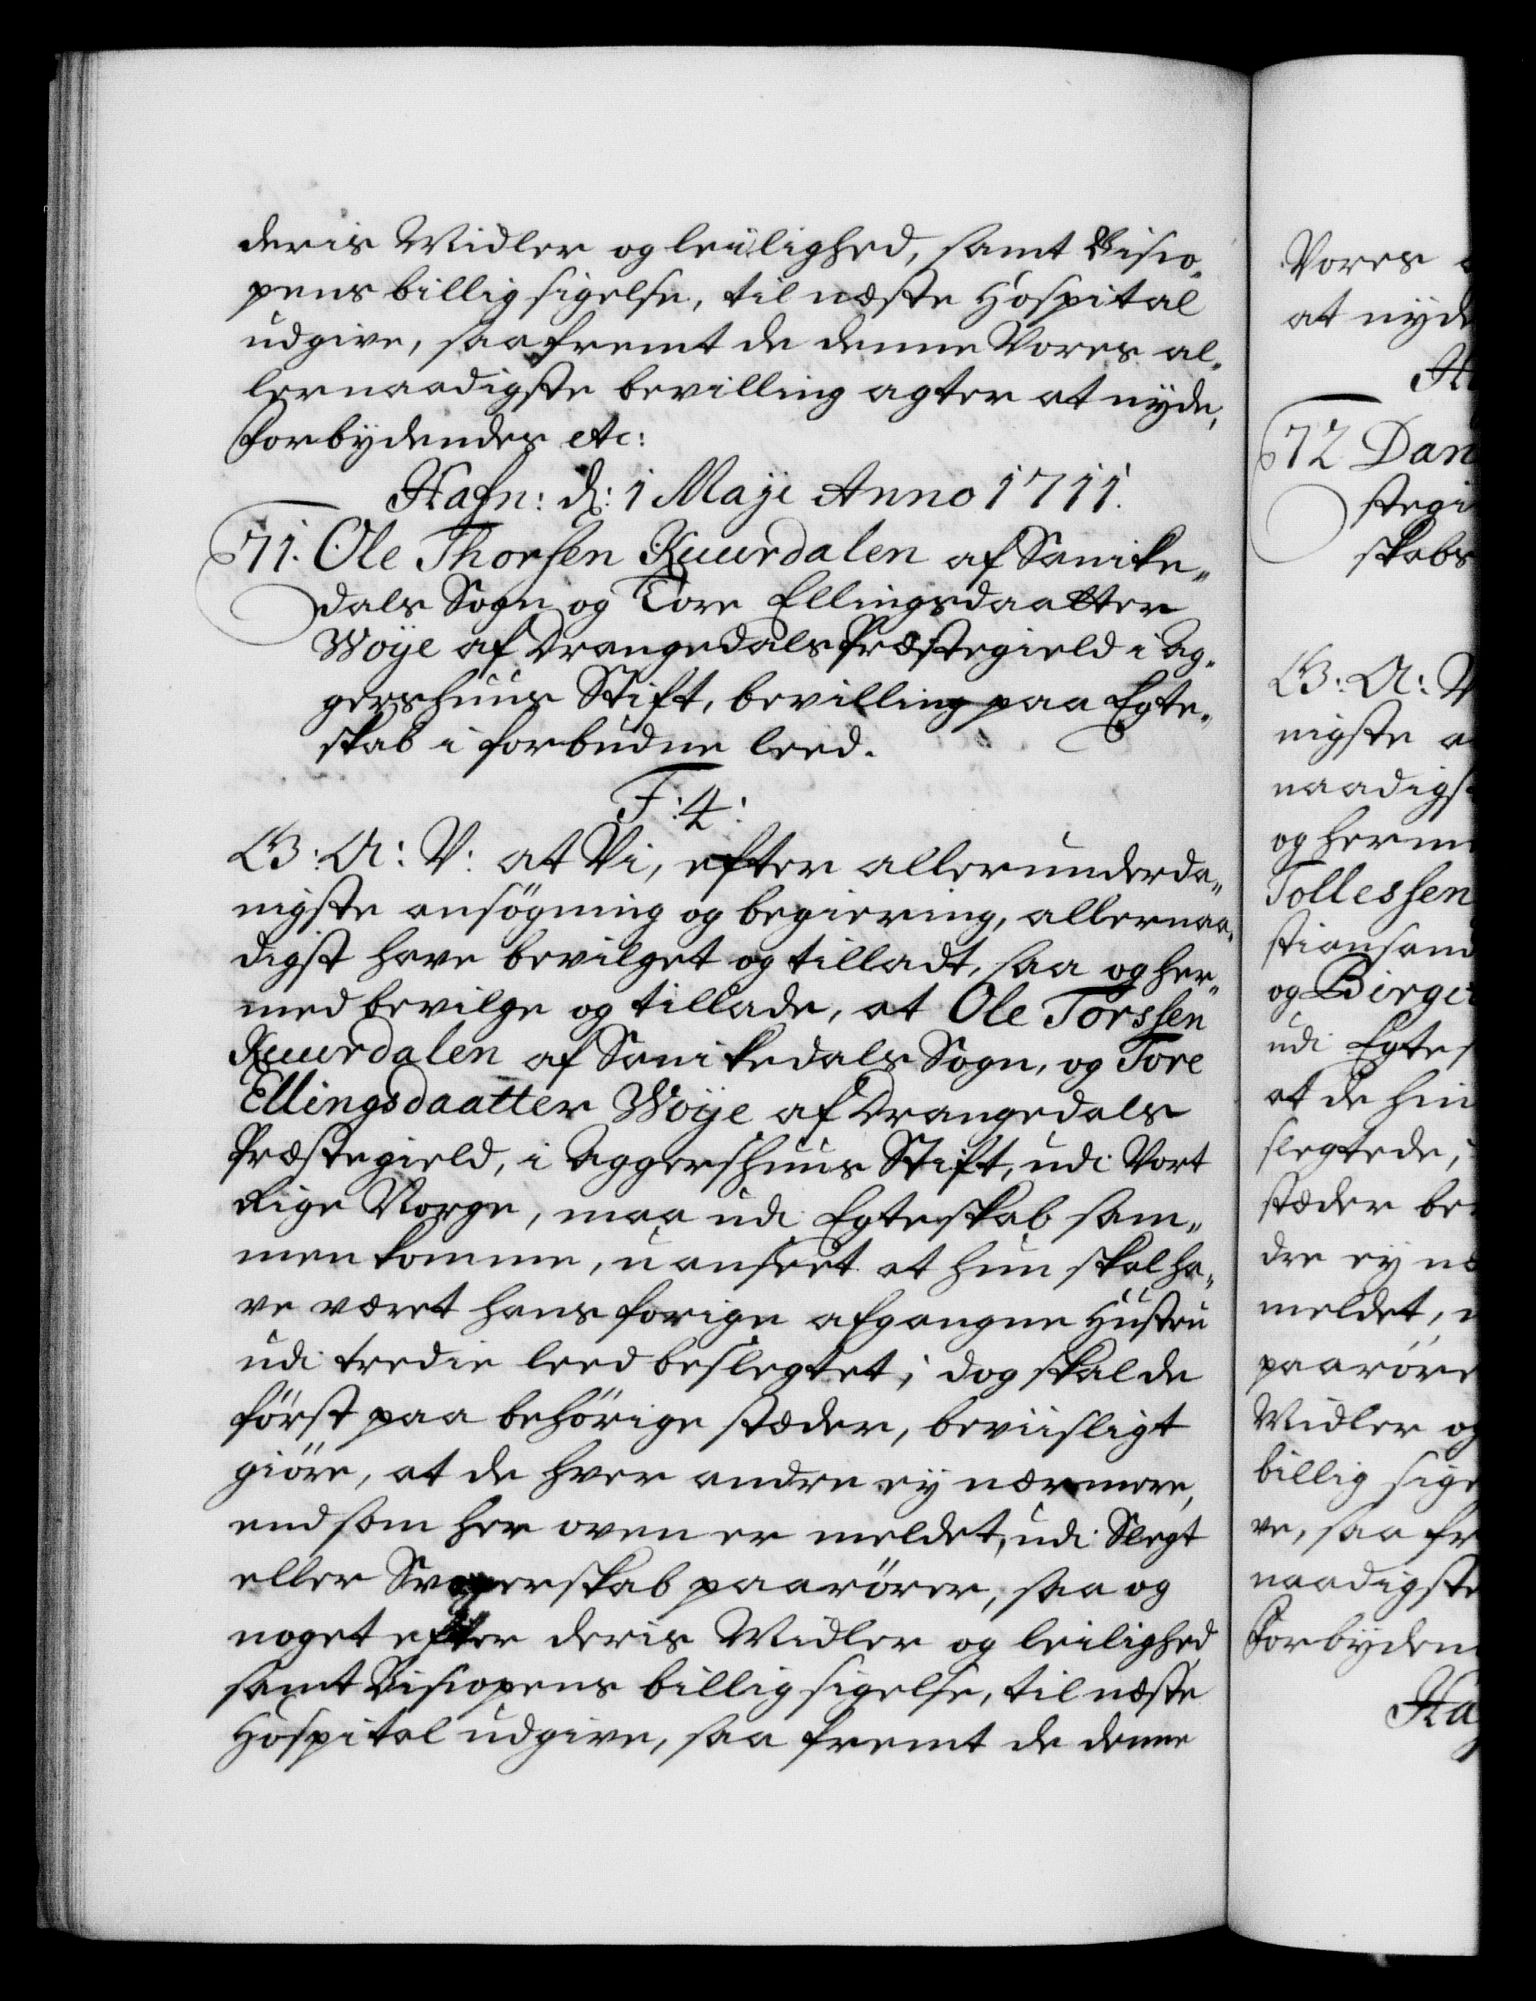 deris Midler og leilighed, samt Bisco„
pens billig sigelse, til næste Hospital
udgive, saafremt de denne Vores al„
lernaadigste bevilling agter at nyde,
forbydendes etc:
Hafn: d: 1 Maji Anno 1711.
71. Ole Thorsen Kuurdalen af Sanike„
dals Sogn og Tore Ellingsdaatter
Woije af Drangedals Præstegield i Ag„
gershuus Stift, bevilling paa Egte„
skab i forbudne leed.
F: 4:
G: A: V: at Vi, efter allerunderda„
nigste ansøgning og begiering, allernaa„
digst have bevilget og tilladt, saa og her„
med bevilge og tillade, at Ole Torssen
Kuurdalen af Sanikedals Sogn, og Tore
Ellingsdaatter Woije af Drangedals
Præstegield, i Aggershuus Stift, udi Vort
Rige Norge, maa udi Egteskab sam„
men komme, uanseet at hun skal ha„
ve været hans forige afgangne Hustru
udi tredie leed beslegtet; dog skal de
først paa behørige stæder, beviisligt
giøre, at de hver andre ey nærmere,
end som her oven er meldet, udi Slegt
eller Svogerskab paarører, saa og
noget efter deris Midler og leilighed
samt Biscopens billig sigelse, til næste
Hospital udgive, saa fremt de denne
Vores
at nyde
72 Dan
stegi
skabs
G: A: V
nigste a
naadigs
og herm
Tollessen
stiansand
og Birge
udi Egtes
at de hin
slegtede,
stæder be
dre ey næ
meldet,
paarøre
Midler og
billig sige
ve, saa fr
naadigste
forbyden
Ha